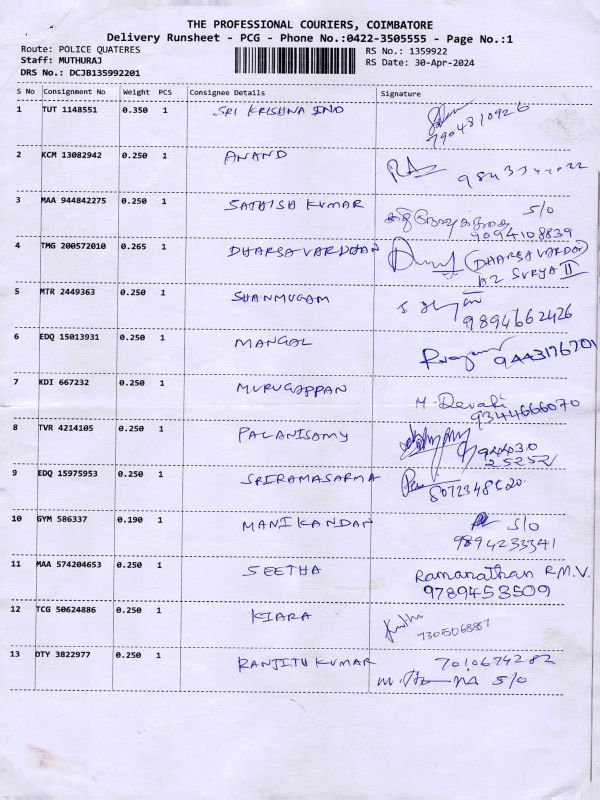 THE PROFESSIONAL COURIERS, COIMBATORE
Delivery Runsheet - PCG - Phone No.:0422-3505555 - Page No.:1
Route: POLICE QUATERES RS No.: 1359922
Staff: MUTHURAJ RS Date: 30-Apr-2024
DRS No.: DCJB135992201
S No Consignment No Weight PCS Consignee Details Signature
1 TUT 1148551 0.350 1 SRI KRISHNA IND
7904810926
2 KCM 13082942 0.250 1 ANAND
3 MAA 944842275 0.250 1 SATHISH KUMAR S/O
9094108839
4 TMG 200572010 0.265 1 DHARSAVARDHAN (DHARSAVARDO)
A2 SURYA II
5 MTR 2449363 0.250 1 SHANMUGAM
9894662426
6 EDQ 15013931 0.250 1 MANGAL 9443176701
7 KDI 667232 0.250 1 MURUGAPPAN M. Devaki
9344666070
8 TVR 4214105 0.250 1 PALANISAMY 944430
25252
9 EDQ 15975953 0.250 1 SRIRAMASARMA
8072348620
10 GYM 586337 0.190 1 MANIKANDAN S/O
9894233341
11 MAA 574204653 0.250 1 SEETHA Ramanathan R.M.V.
9789453509
12 TCG 50624886 0.250 1 KIARA
7305068887
13 DTY 3822977 0.250 1 RANJITH KUMAR 7010674282
S/O